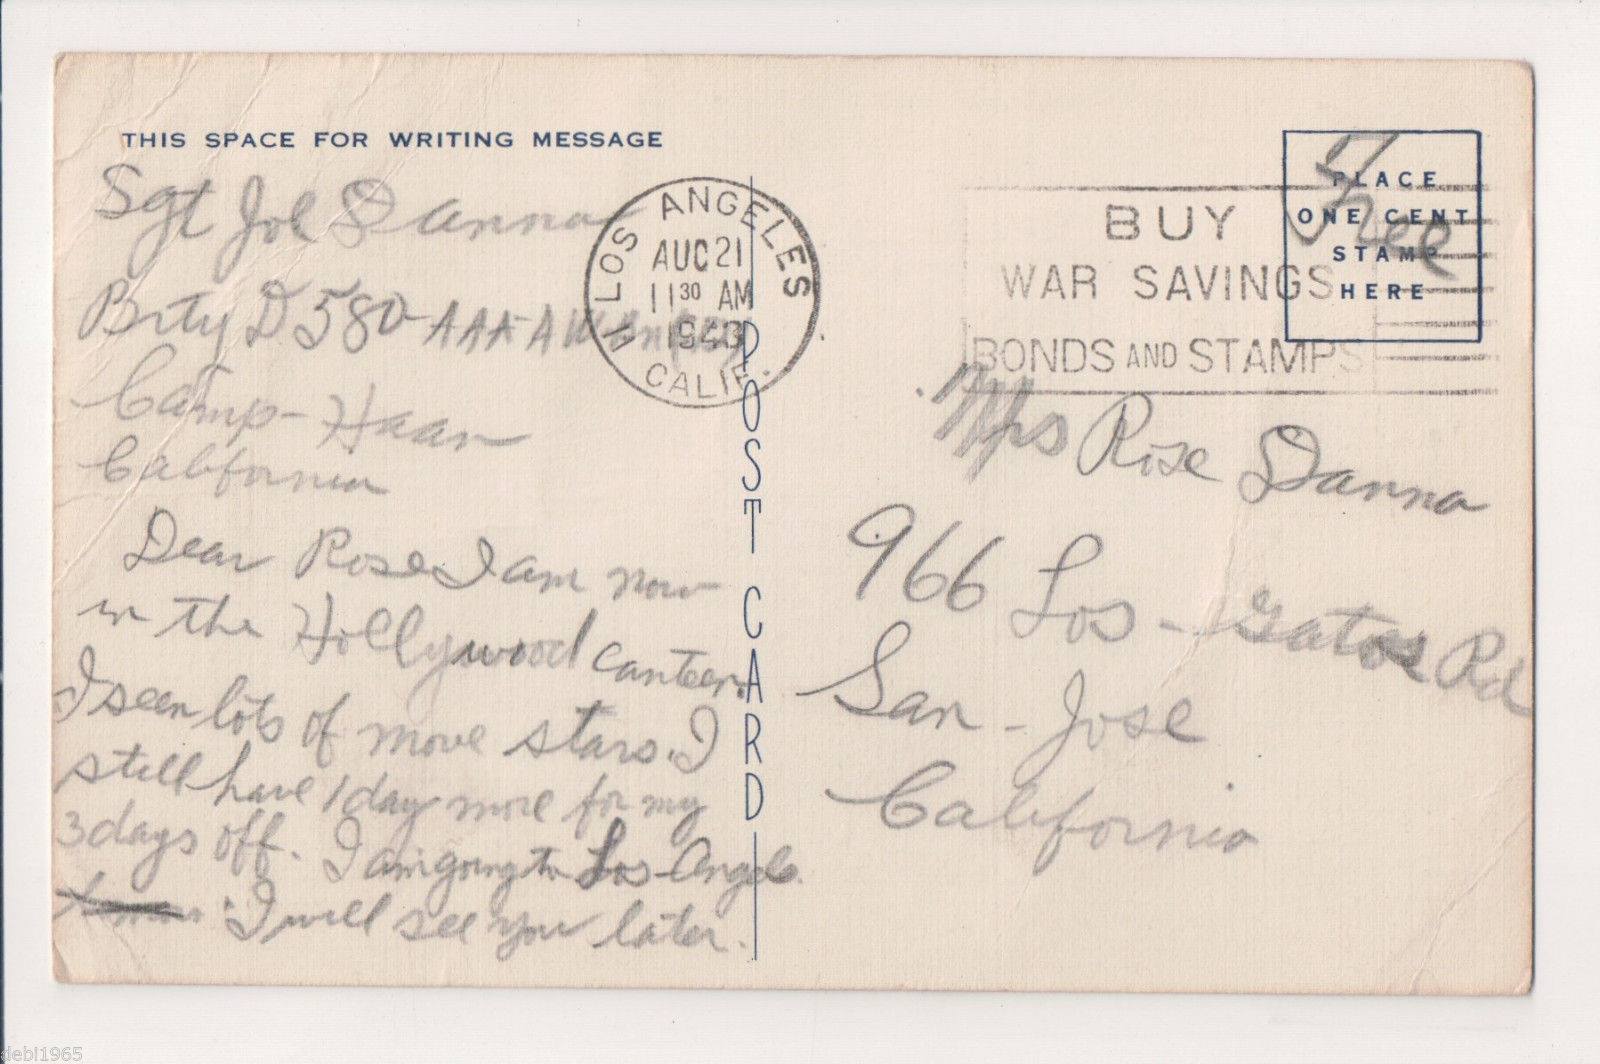 THIS SPACE FOR WRITING MESSAGE
Sgt Joe Danna
Brty D 580 AAA AW
Camp-Haan
California
Dear Rose I am now
in the Hollywood canteen.
I seen lots of move stars. I
still have 1 day more for my
3 days off. I am going to Los-Angeles
I will see you later.
LOS ANGELES
AUG 21
11 30 AM
1943
CALIF.
POST CARD
BUY
WAR SAVINGS
BONDS AND STAMPS
PLACE
ONE CENT
STAMP
HERE
Free
Mrs Rose Danna
966 Los-Gatos Rd
San-Jose
California
debl1965